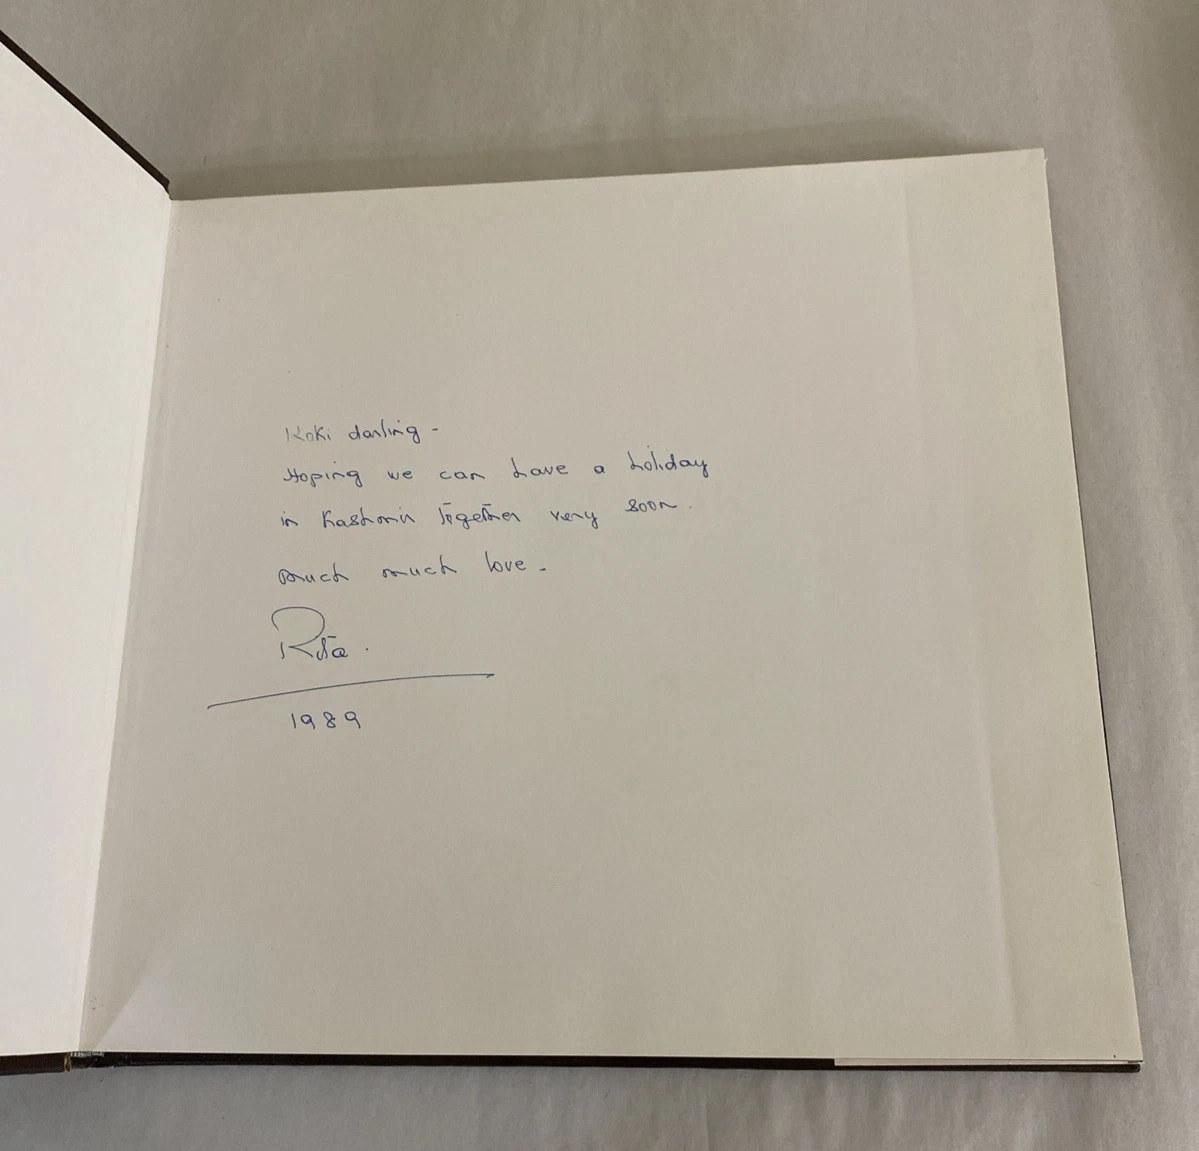 Koki darling -
Hoping we can have a holiday
in Kashmir together very soon.
much much love -
Rita.
1989